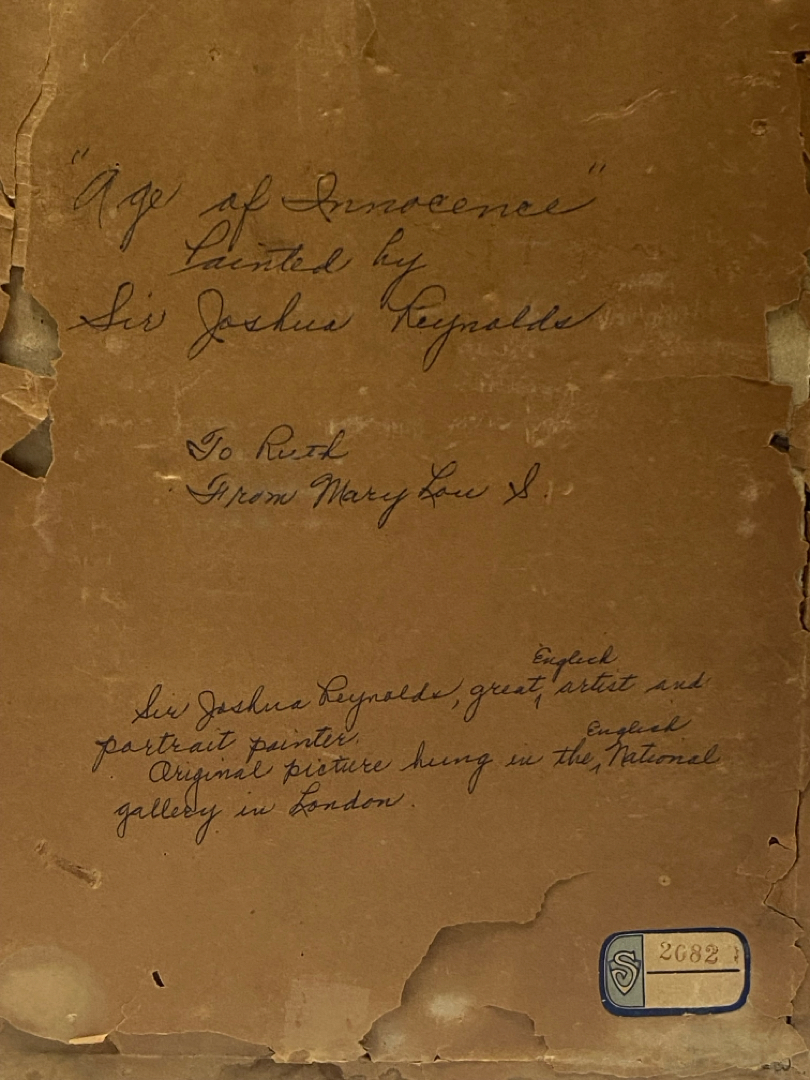 "Age of Innocence"
Painted by
Sir Joshua Reynolds
To Ruth
From Mary Lou S.
English
Sir Joshua Reynolds, great ‸ artist and
portrait painter.
English
Original picture hung in the ‸ National
gallery in London.
S 2682